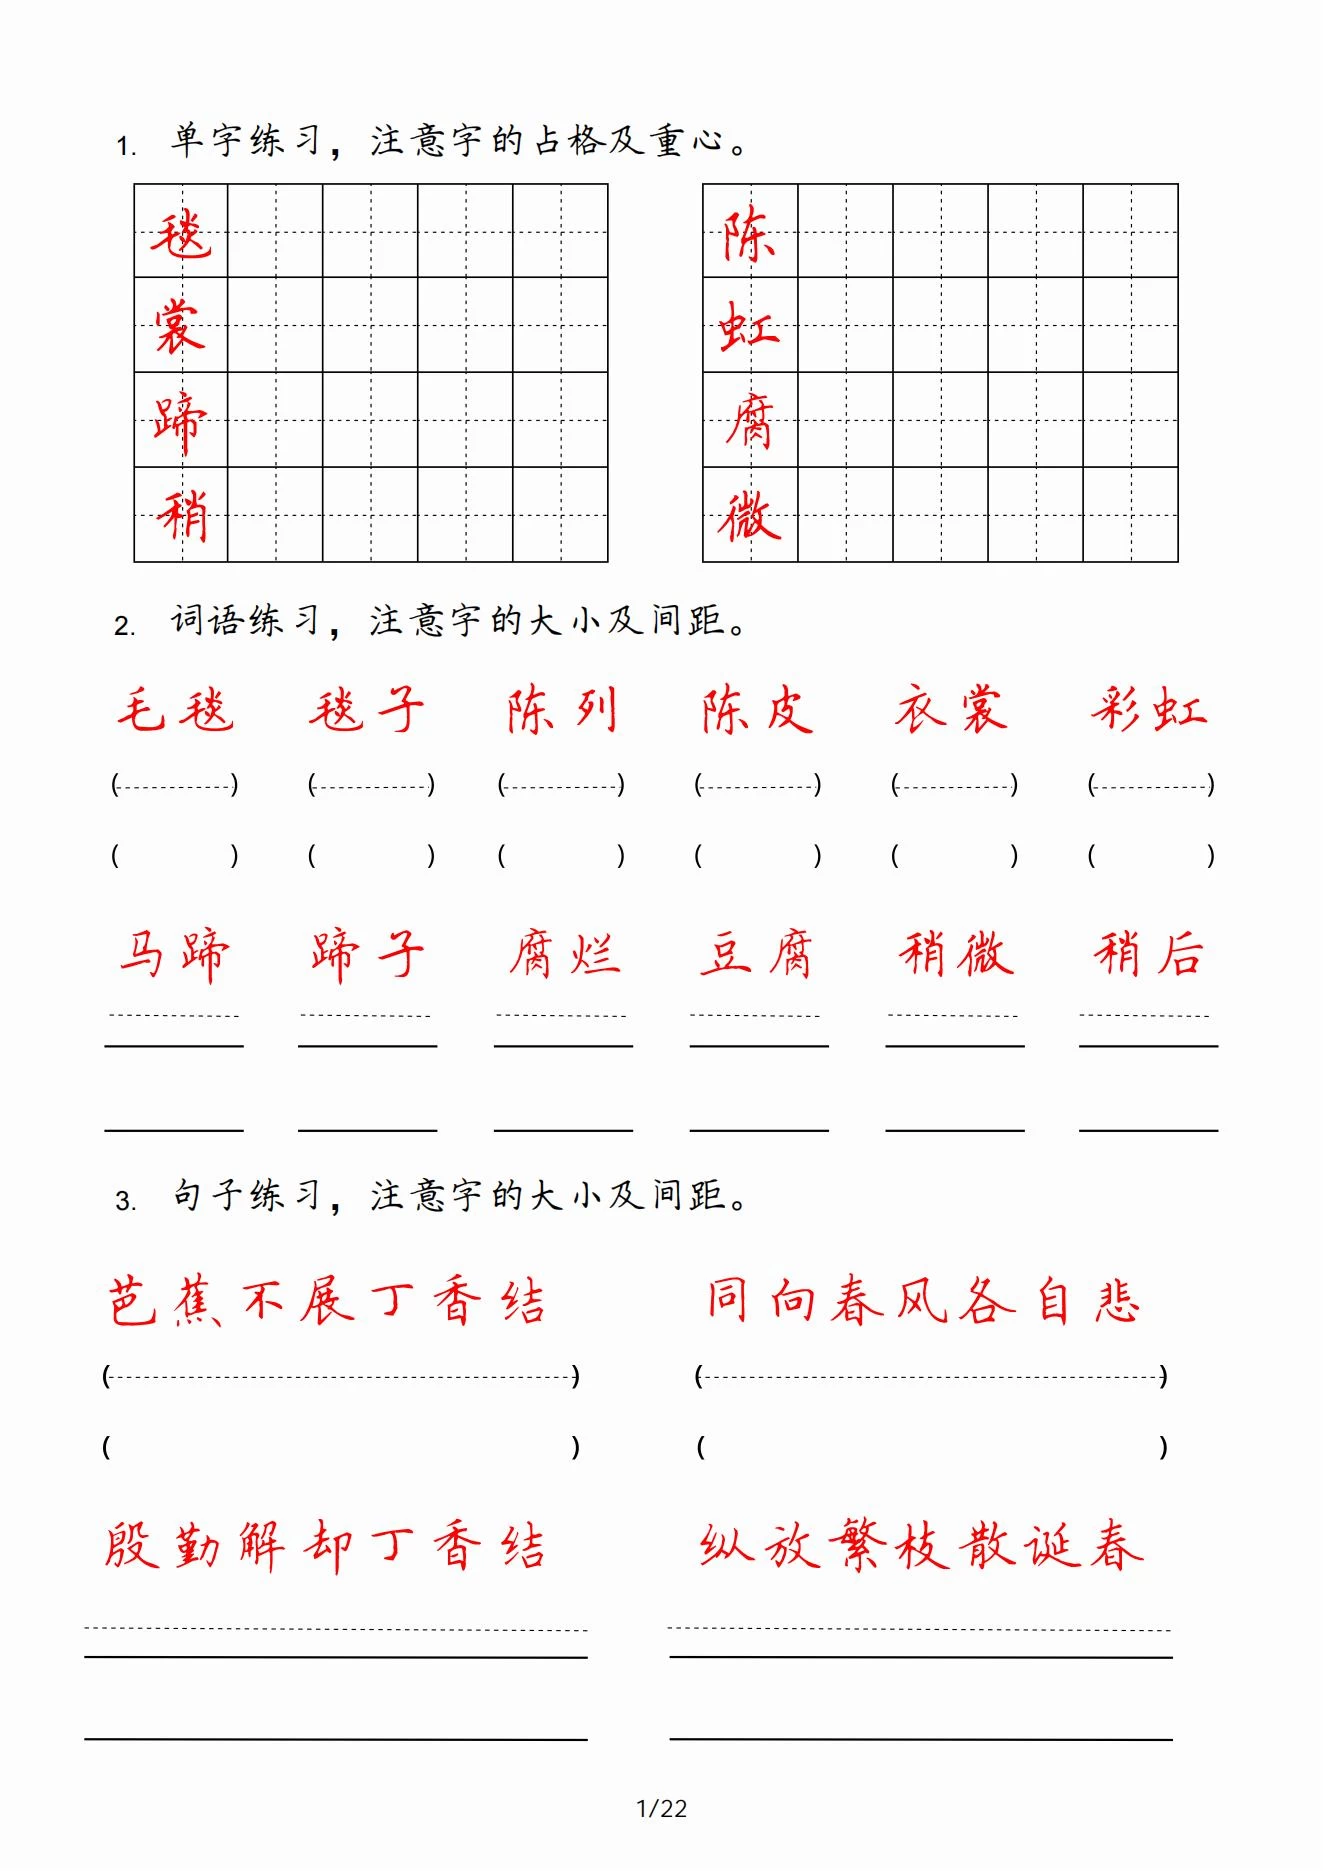 1. 单字练习，注意字的占格及重心。
毯 陈
裳 虹
蹄 腐
稍 微
2. 词语练习，注意字的大小及间距。
毛毯 毯子 陈列 陈皮 衣裳 彩虹
( ) ( ) ( ) ( ) ( ) ( )
( ) ( ) ( ) ( ) ( ) ( )
马蹄 蹄子 腐烂 豆腐 稍微 稍后
3. 句子练习，注意字的大小及间距。
芭蕉不展丁香结 同向春风各自悲
( ) ( )
( ) ( )
殷勤解却丁香结 纵放繁枝散诞春
1/22